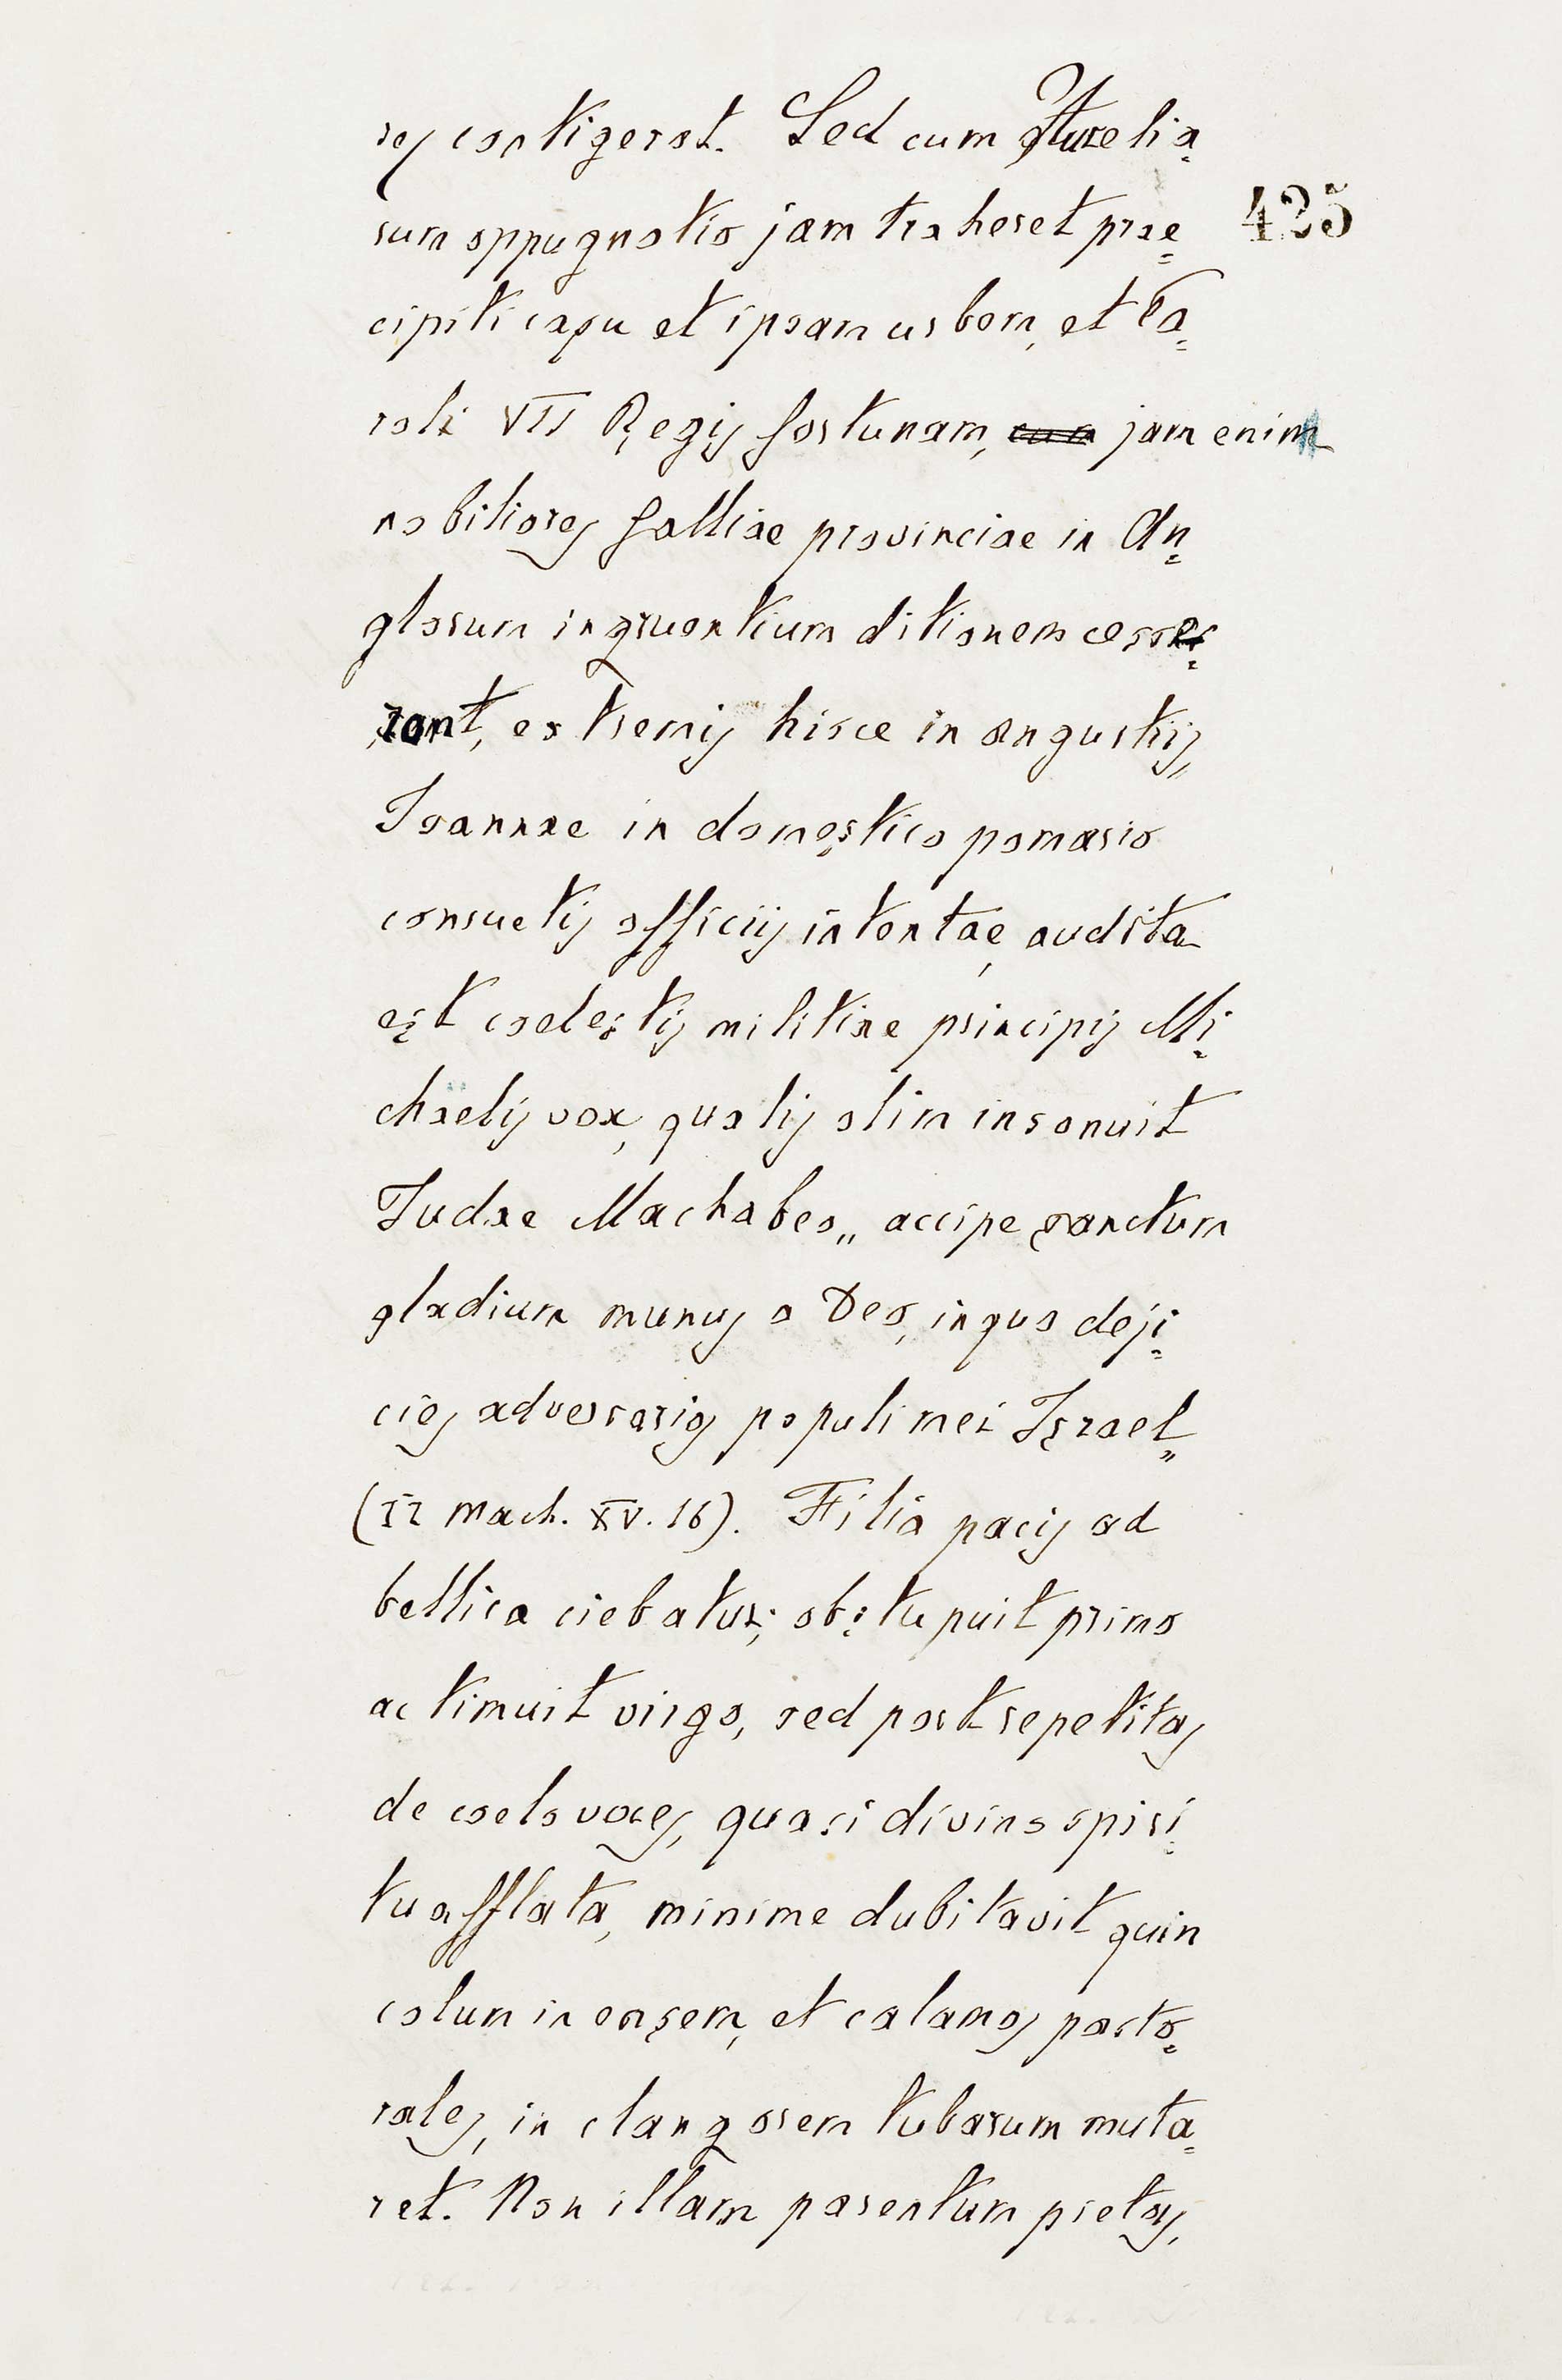 res contigerat. Sed cum Aurelia=
rum oppugnatio jam traheret prae=
425
cipiti casu et ipsam urbem, et Ca=
roli VII Regis fortunam, cum jam enim
nobiliores Galliae provinciae in An=
glorum ingruentium ditionem cesse=
rant, extremis hisce in angustiis,
Joannae in domestico pomario
consuetis officiis intentae, audita
est coelestis militiae principis Mi=
chaelis vox, qualis olim insonuit
Judae Machabeo „ accipe sanctum
gladium munus a Deo, in quo deji=
cies adversarios populi mei Israel„
(II Mach. XV. 16). Filia pacis ad
bellica ciebatur; obstupuit primo
ac timuit virgo, sed post repetitas
de coelo voces, quasi divino spiri=
tu afflata, minime dubitavit quin
colum in ensem, et calamos pasto=
rales, in clangorem tubarum muta=
ret. Non illam parentum pietas,